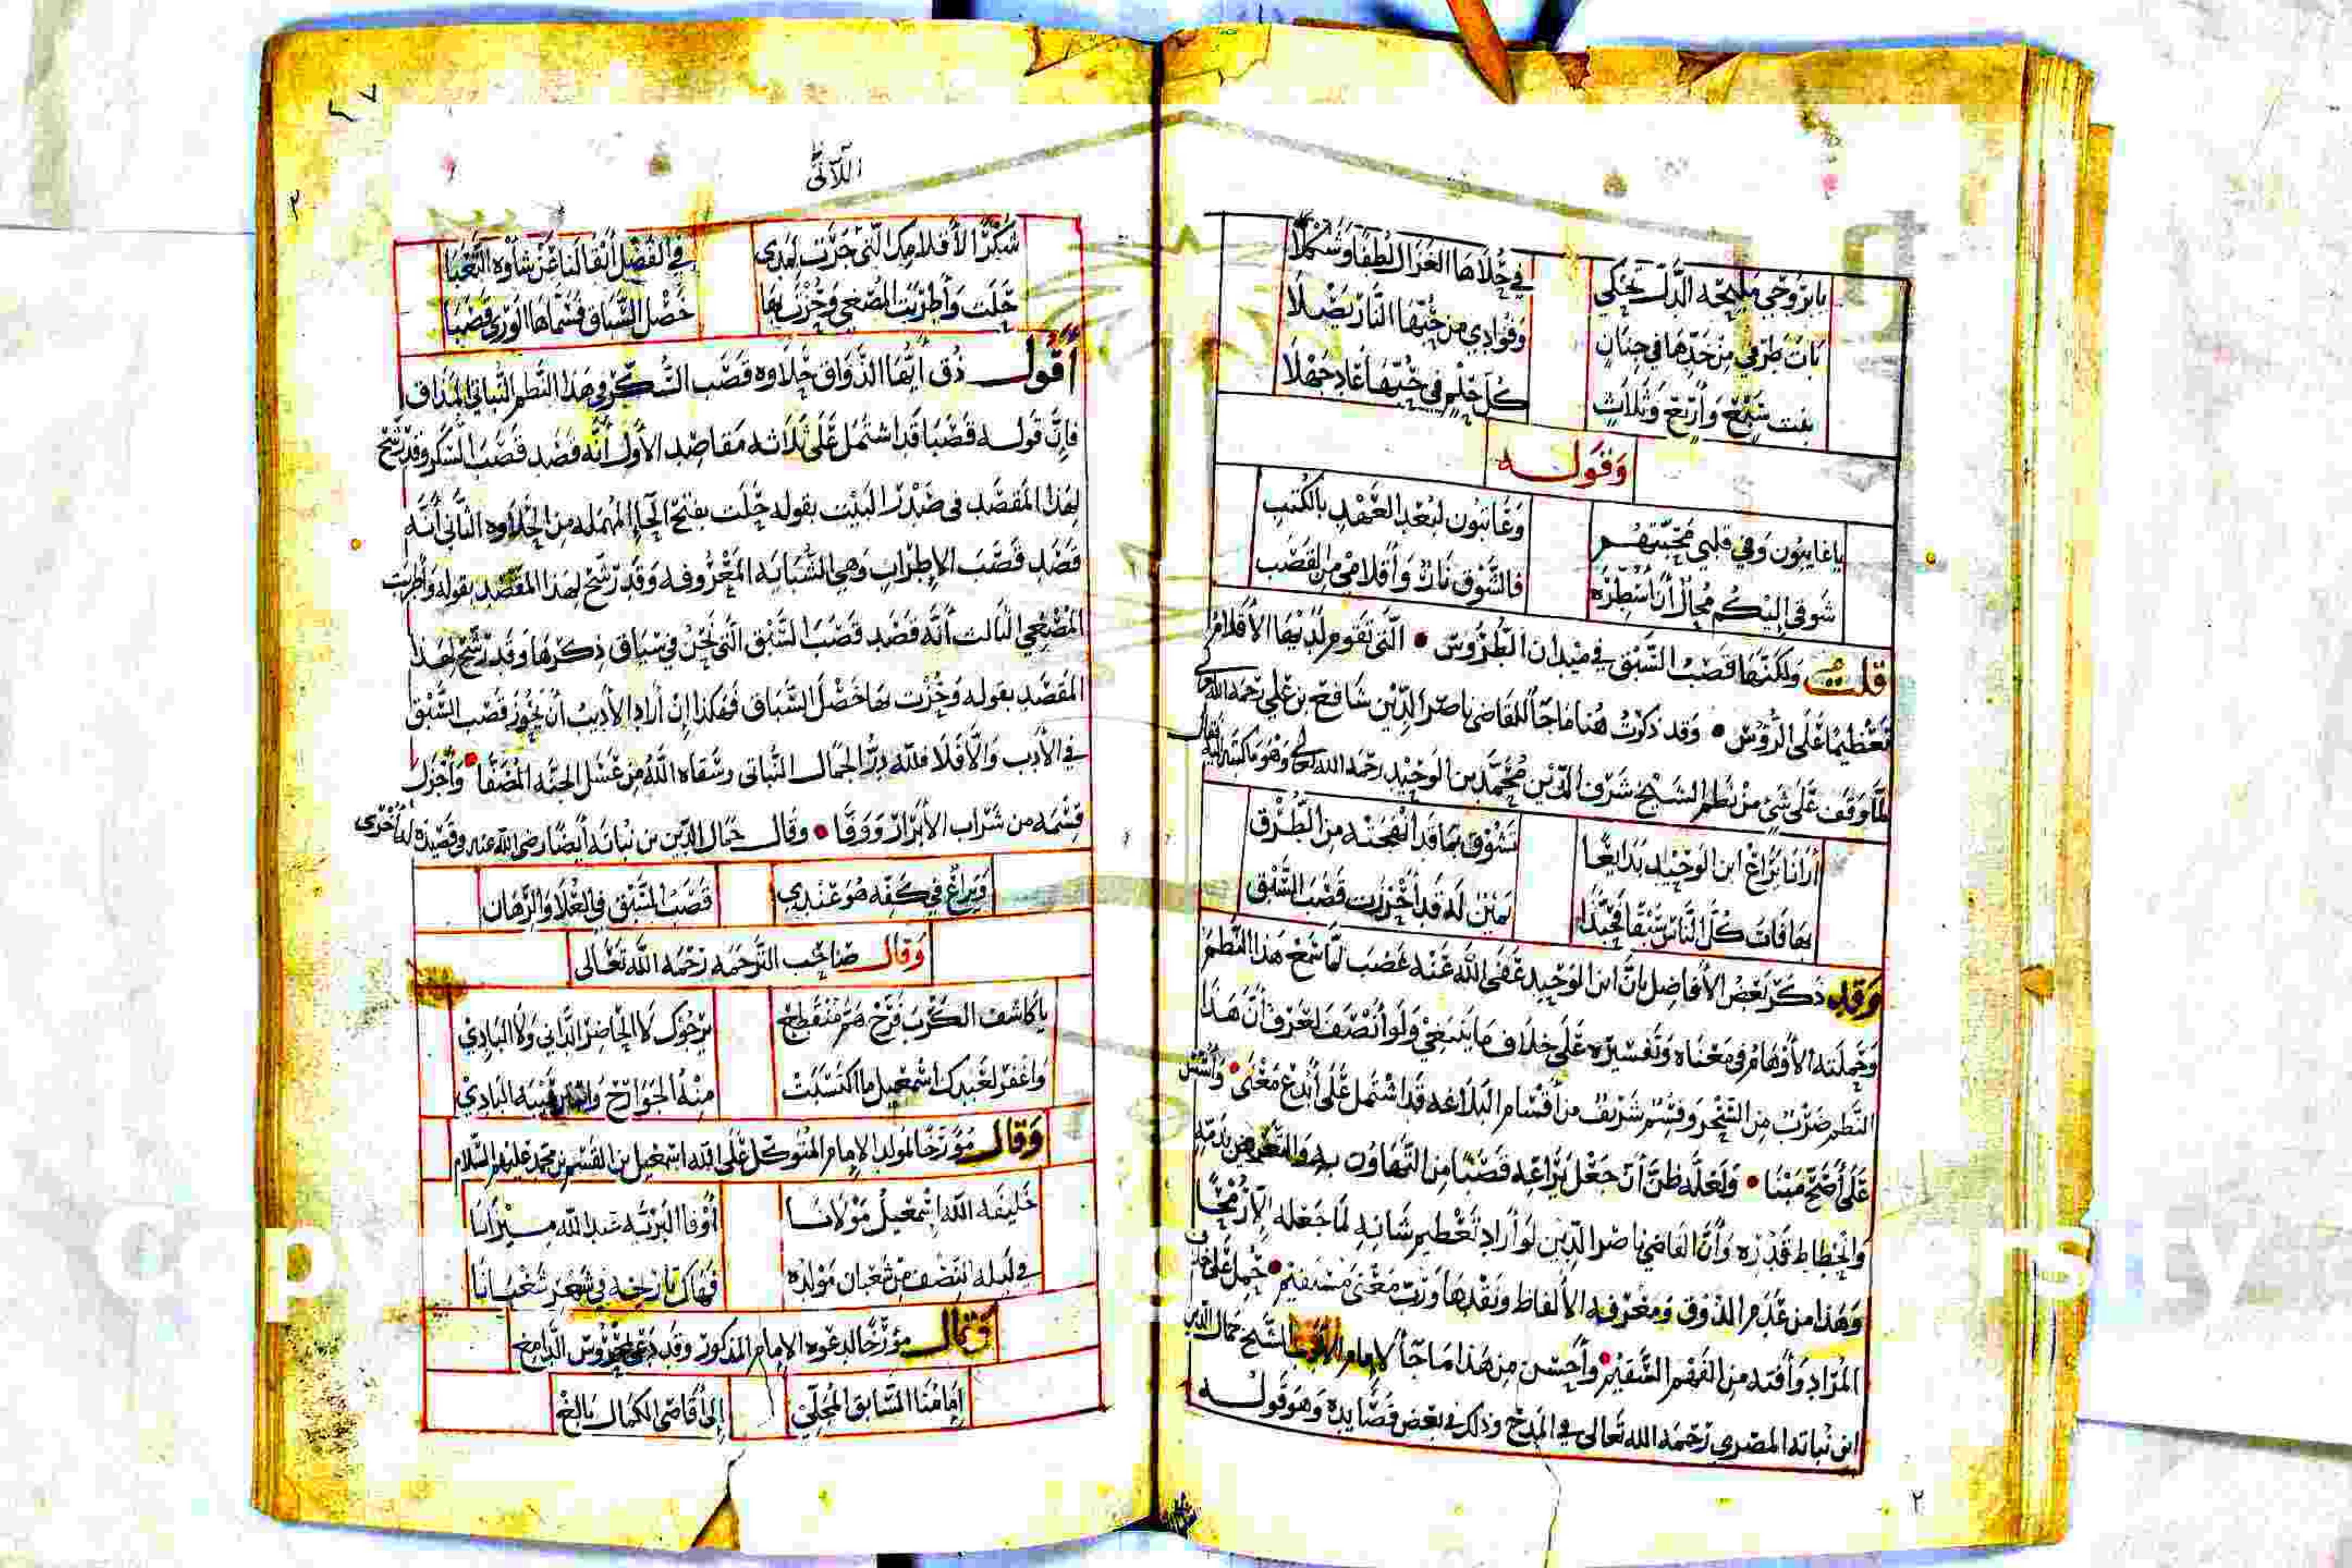 بابي روحي مليحة الدل تحكي في حلاها الغزال لطفا وشكلا
بات طرفي من خدها في جنان وفوادي من حبها النار يصلا
بنت سبع وأربع وثلاث كل حلم في حبها عاد جهلا
وقوله
ياغايبون وفي قلبي محبتهم وعاتبون لبعد العهد بالكتب
شوقي إليكم مجال أن أسطره فالشوق نار وأقلامي من القصب
قلت ولكنها قصب السبق في ميدان الطروس التي تقوم لديها الأقلام
تعظيما على الرؤس وقد ذكرت هنا ماجا للقاضي ناصر الدين شافع بن علي رحمه الله
لما وقف على شي من نظم الشيخ شرف الدين محمد بن الوحيد رحمه الله وهو ما كتبه إليه
أرانا يراع ابن الوحيد بدايعا تشوق بما قد أنهجته من الطرق
بها فات كل الناس سبقا فحبذا يمين له قد أحرزت قصب السبق
وقد ذكر بعض الأفاضل بان ابن الوحيد عفى الله عنه غضب لما سمع هذا النظم
وحملته الأوهام في معناه وتفسيره على خلاف ما ينبغي ولو أنصف لعرف أن هذا
النظم ضرب من السحر وقسم شريف من أقسام البلاغه قد اشتمل على أبدع معنى وأسس
على أصح مبنا ولعله ظن أن جعل يراعه قصبا من التهاون به والتعريض بذمه
وانحطاط قدره وأن القاضي ناصر الدين لو أراد تعظيم شانه لما جعله إلا رمحا
وهذا من عدم الذوق ومعرفة الألفاظ ونقدها ورب معنى مستقيم حمل على خلاف
المراد وأفته من الفهم السقيم وأحسن من هذا ماجا لامام الأدب الشيخ جمال الدين
ابن نباته المصري رحمه الله تعالى في المديح وذلك في بعض قصايده وهو قوله
٢
٢٧
اللآلئ
٢
شكرا لأقلامك التي جرت لمدى في الفضل أبقا لنا عن شاوه التعبا
حلت وأطربت المصغي وحزت بها خصل السباق فسماها الورى قصبا
أقول ذق أيها الذواق حلاوه قصب السكر في هذا النظم النباتي المذاق
فإن قوله قصبا قد اشتمل على ثلاثه مقاصد الأول أنه قصد قصب السكر وقد رشح
لهذا المقصد في صدر البيت بقوله حلت بفتح الحا المهمله من الحلاوه الثاني أنه
قصد قصب الإطراب وهي الشبابه المعروفه وقد رشح لهذا المقصد بقوله وأطربت
المصغي الثالث أنه قصد قصب السبق التي نحن في سياق ذكرها وقد رشح لهذا
المقصد بقوله وحزت بها خصل السباق فهكذا إن أراد الأديب أن يحوز قصب السبق
في الأدب وإلا فلا فلله در الجمال النباتي وسقاه الله من عسل الجنه المصفا وأجزل
قسمه من شراب الأبرار ووفا وقال جمال الدين بن نباته أيضا رضي الله عنه في قصيده له أخرى
ويراع في كفه هو عندي قصب السبق في العلا والرهان
وقال صاحب الترجمه رحمه الله تعالى
يا كاشف الكرب فرج هم منقطع يرجوك لا الحاضر الداني ولا البادي
واغفر لعبدك اسمعيل ما اكتسبت منه الجوارح البادي
وقال مؤرخا لمولد الإمام المتوكل على الله اسمعيل بن القسم بن محمد عليهم السلام
خليفه الله اسمعيل مولانا أوفا البريه عند الله ميزانا
في ليله النصف من شعبان مولده فهاك تاريخه في شهر شعبانا
وقال مؤرخا لدعوه الإمام المذكور وقد دعى بمحروس الدامغ
إمامنا السابق المجلي إلى أقاصي الكمال بالغ